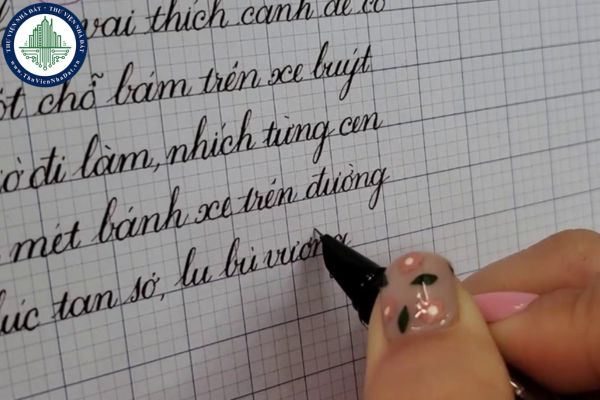 THƯ VIỆN NHÀ ĐẤT * THƯ VIỆN NHÀ ĐẤT
www.ThuVienNhaDat.vn
vai thích cánh để có
ột chỗ bám trên xe buýt
iờ đi làm, nhích từng cen
mét bánh xe trên đường
lúc tan sở, lu bù